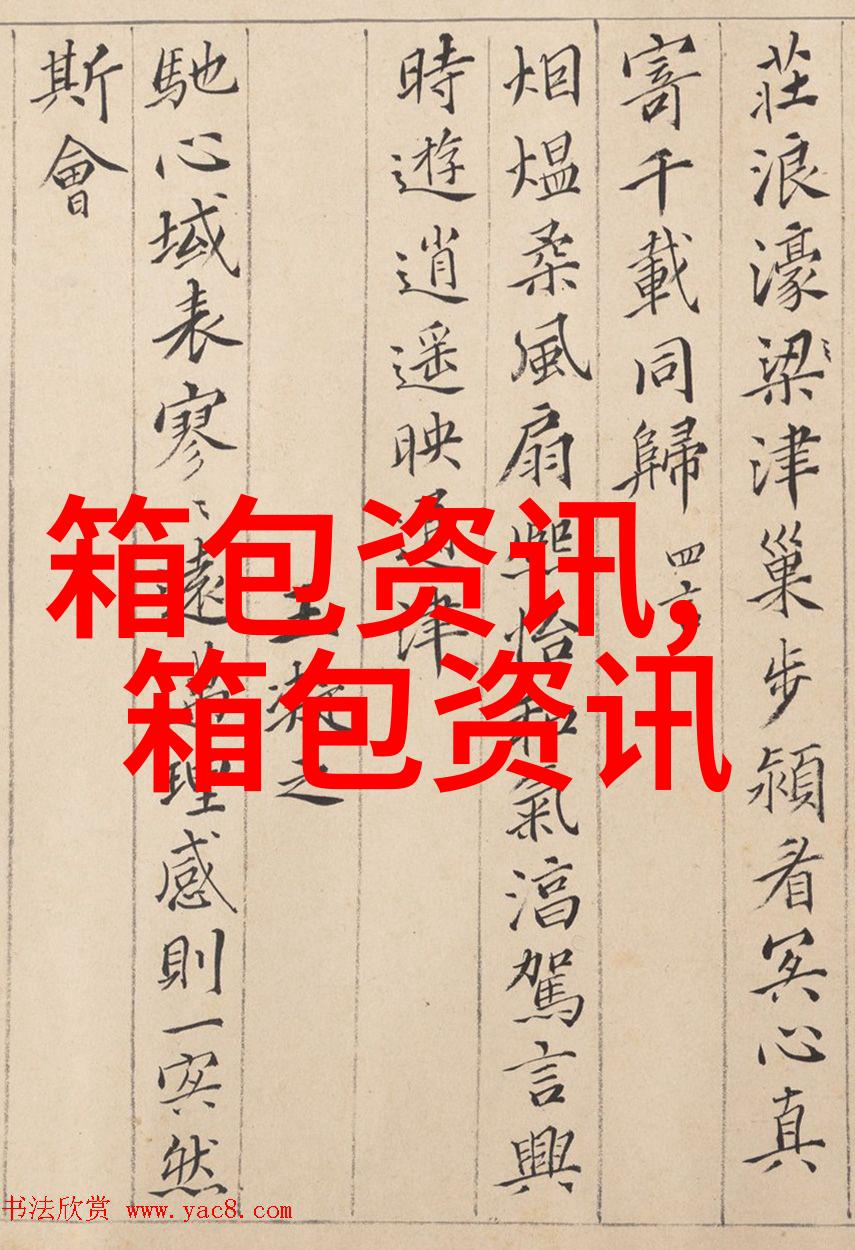 莊浪濠梁津巢步潁看冥心真
寄千載同歸 四言
烟煴柔風扇熙怡和氣淳駕言興
時遊逍遥映通津
王凝之
馳心域表寥〻遠邁理感則一冥然
斯會
箱包资讯,
箱包资讯
书法欣赏 www.yac8.com